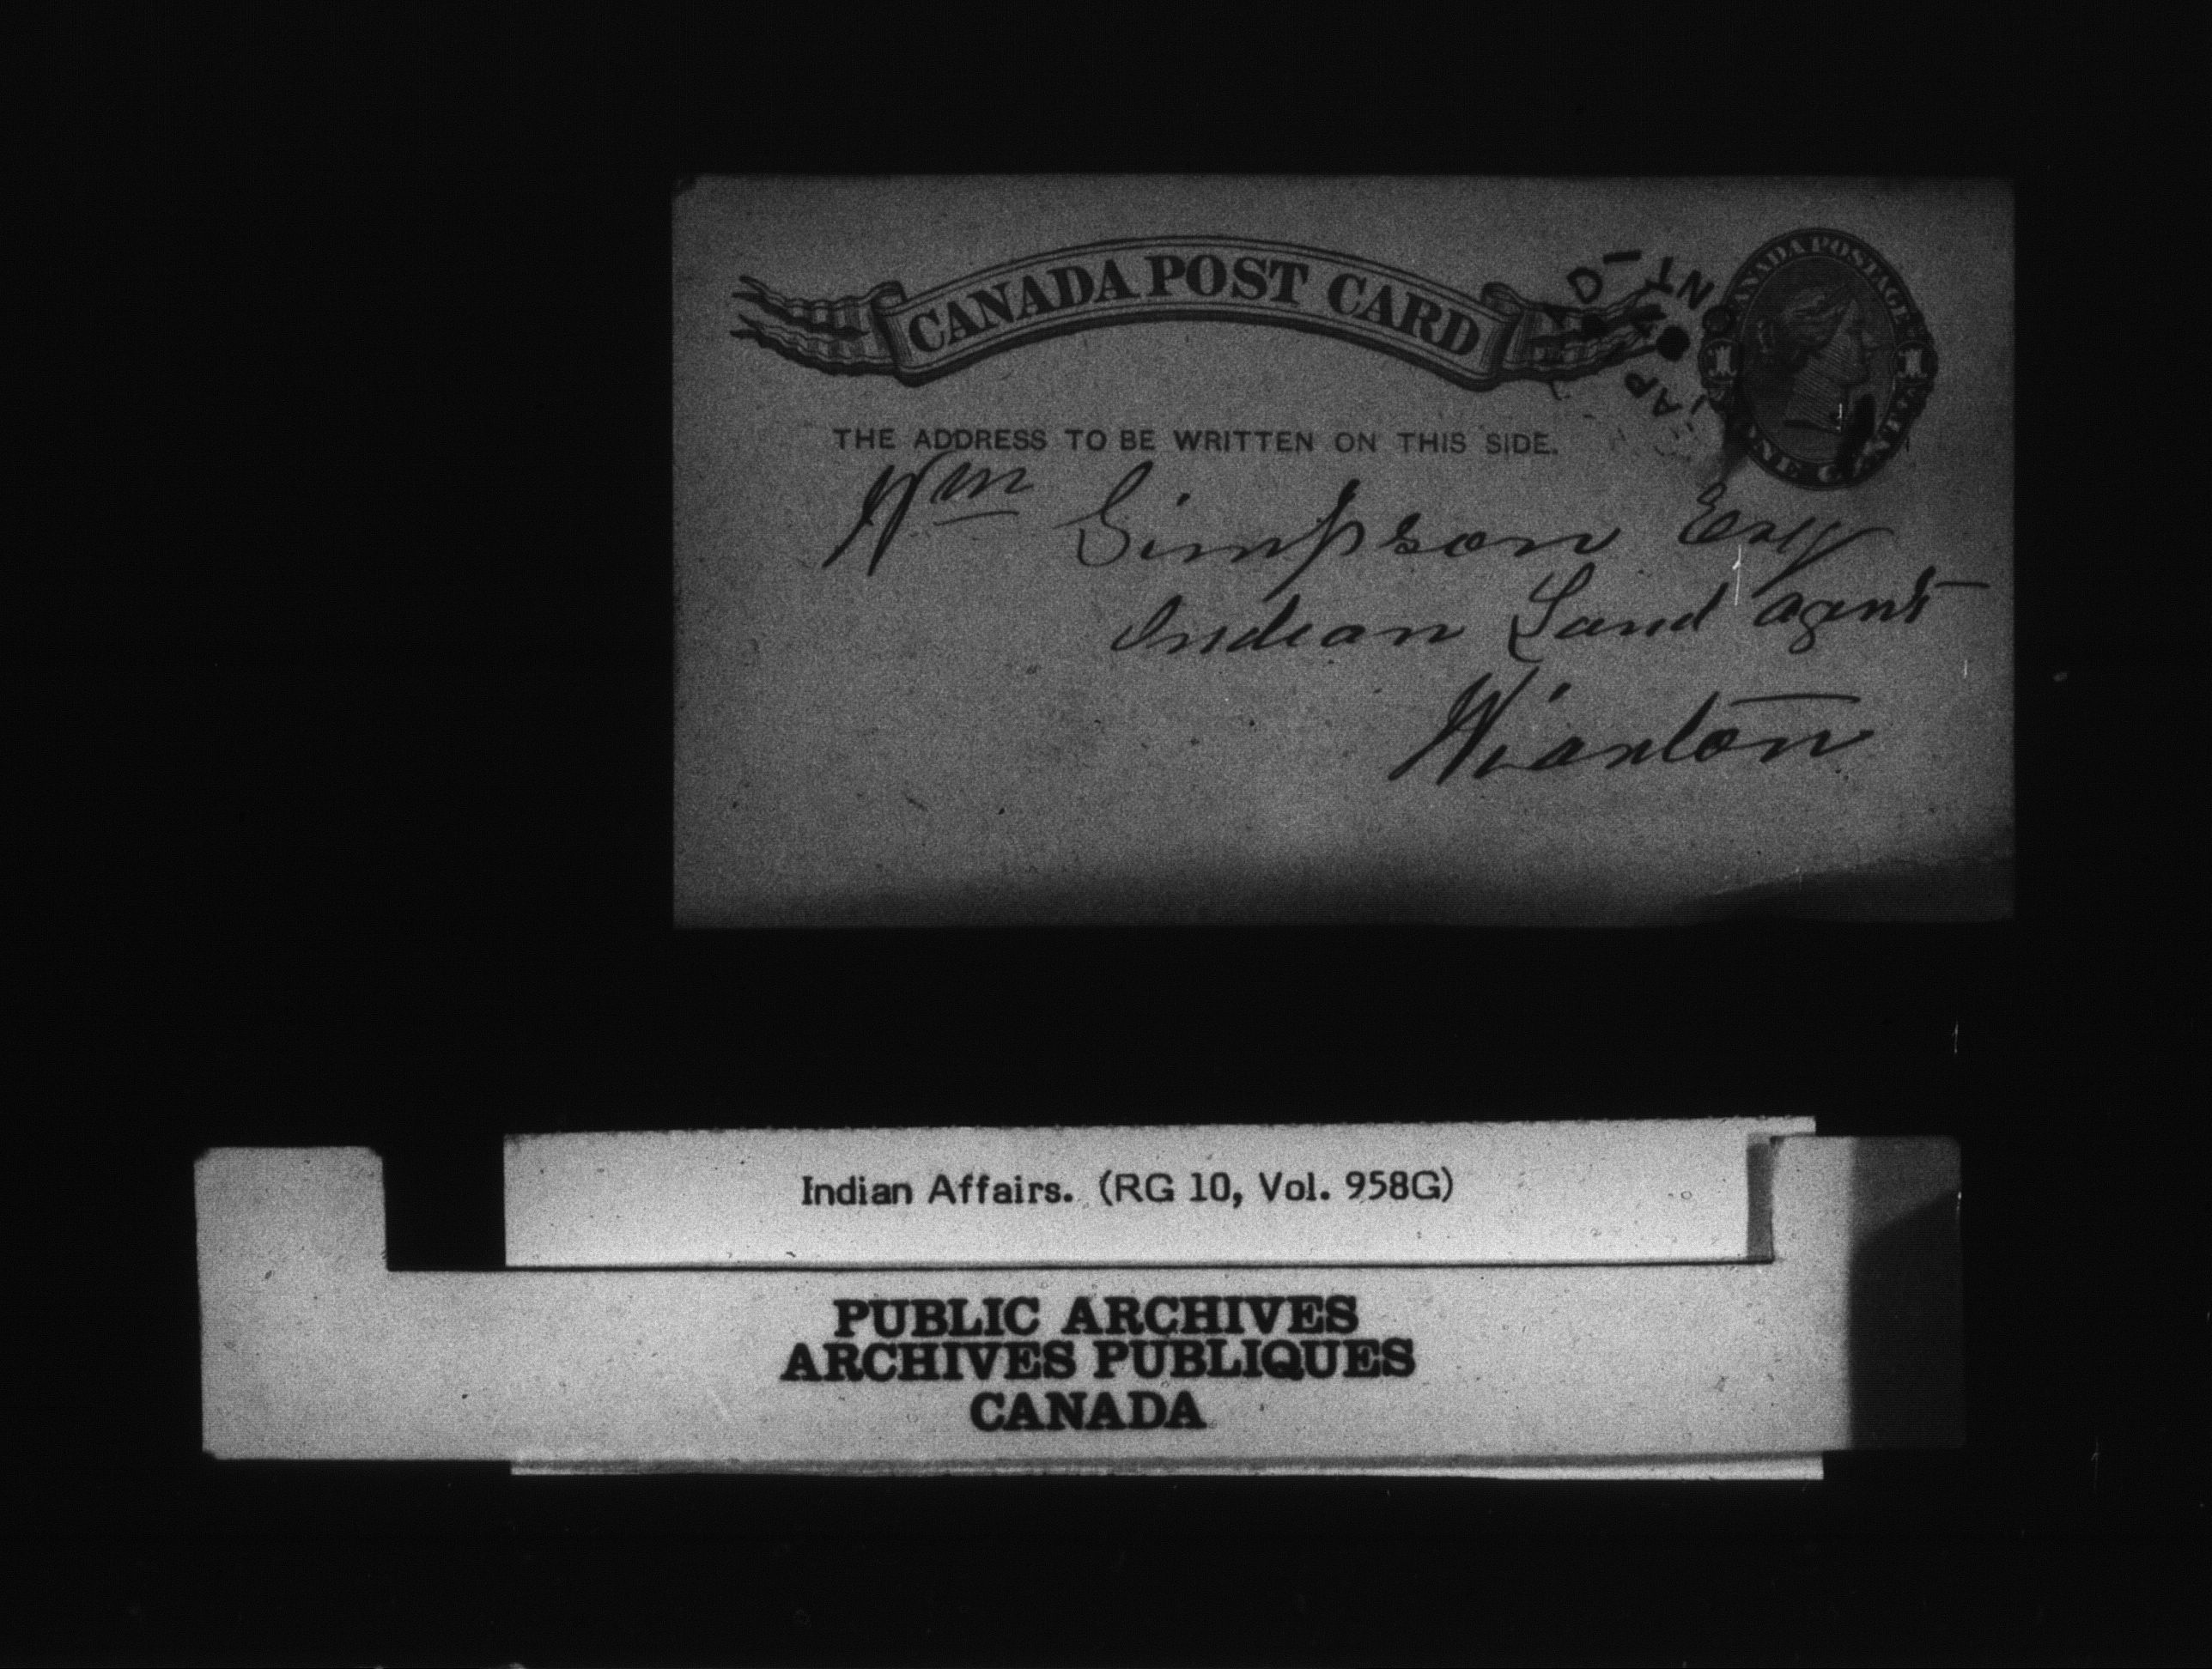 CANADA POST CARD
CANADA POSTAGE
ONE CENT
THE ADDRESS TO BE WRITTEN ON THIS SIDE.
Wm Simpson Esq
Indian Land Agent
Wiarton
Indian Affairs. (RG 10, Vol. 958G)
PUBLIC ARCHIVES
ARCHIVES PUBLIQUES
CANADA